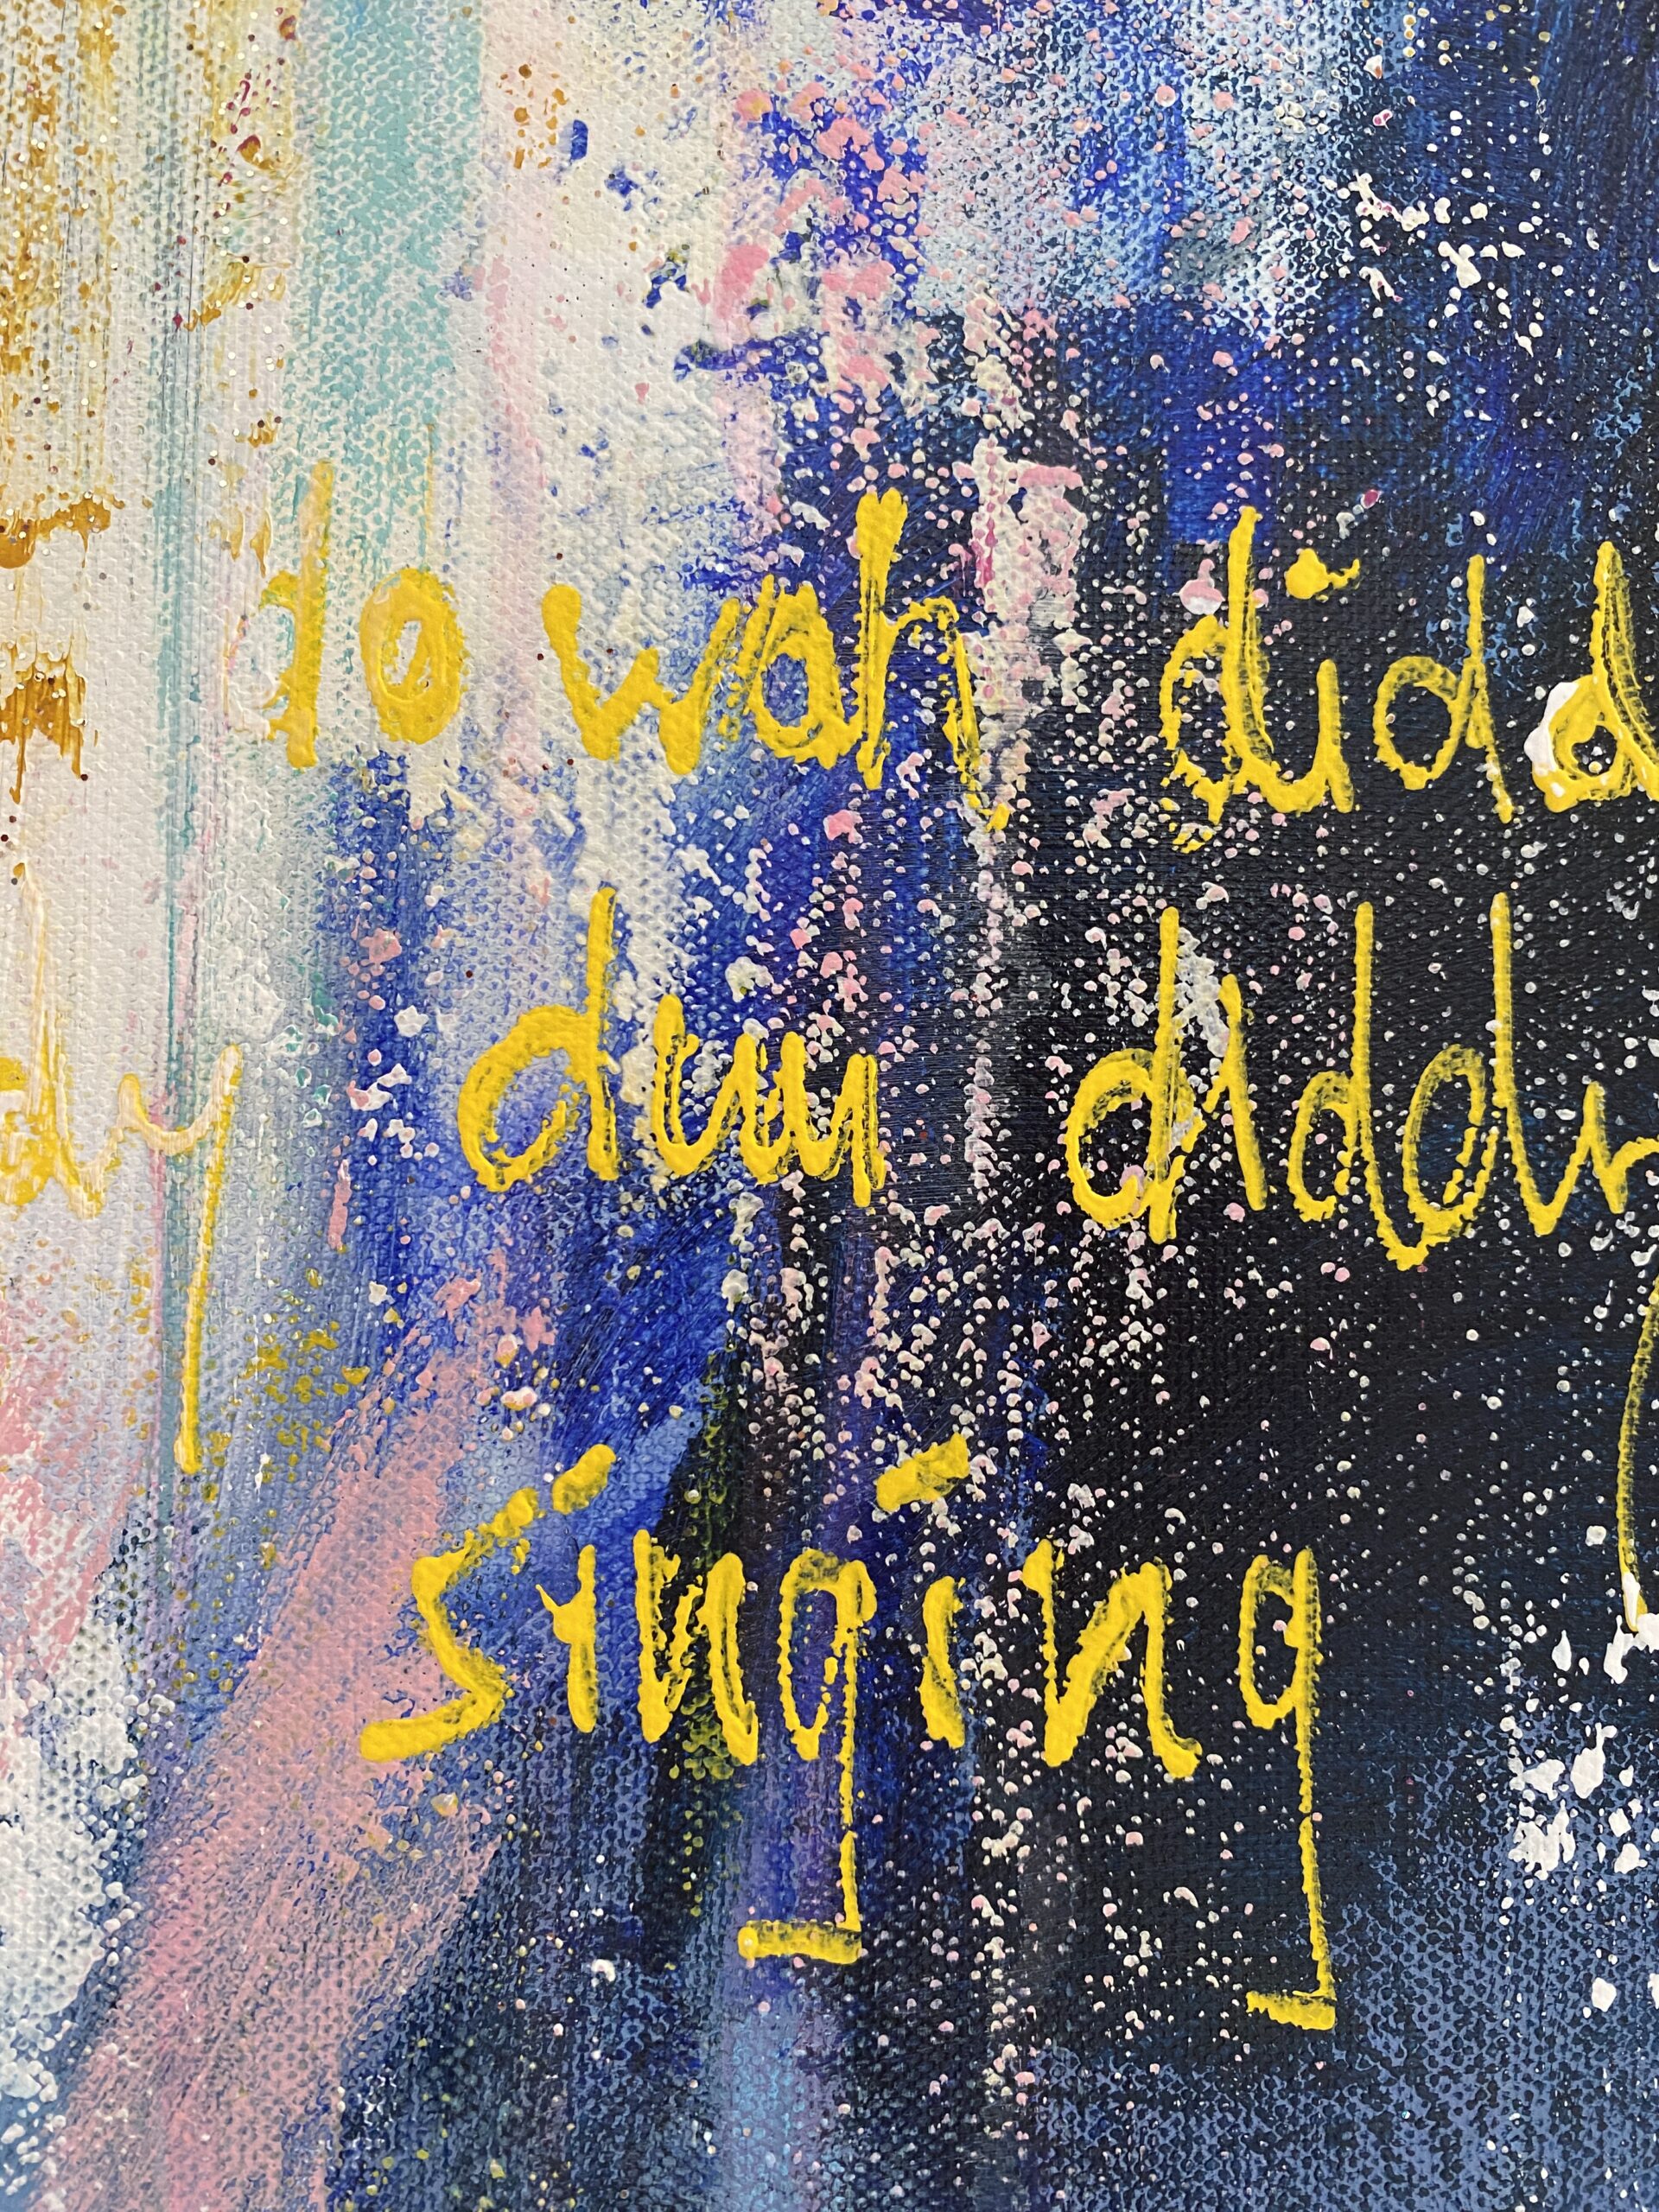 do wah didd
dy dum diddy
singing